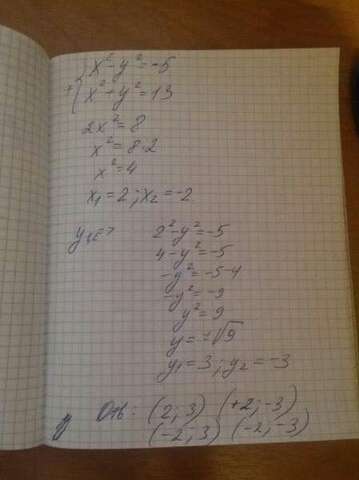 {x²-y²=-5
+{x²+y²=13
2x²=8
x²=8:2
x²=4
x₁=2; x₂=-2
2²-y²=-5
4-y²=-5
-y²=-5-4
-y²=-9
y²=9
y=±√9
y₁=3; y₂=-3
Отв: (2;3) (+2;-3)
(-2;3) (-2;-3)